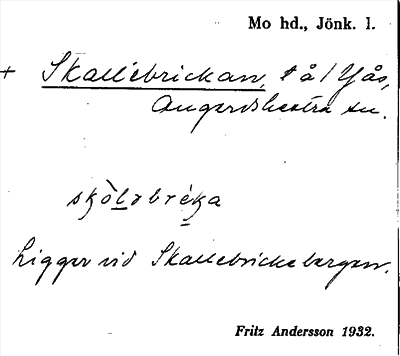 Mo hd., Jönk. l.
+ Skallebrickan, å/ Yås,
Angerdshestra sn.
skòlobréka
Ligger vid Skallebrickebergen.
Fritz Andersson 1932.